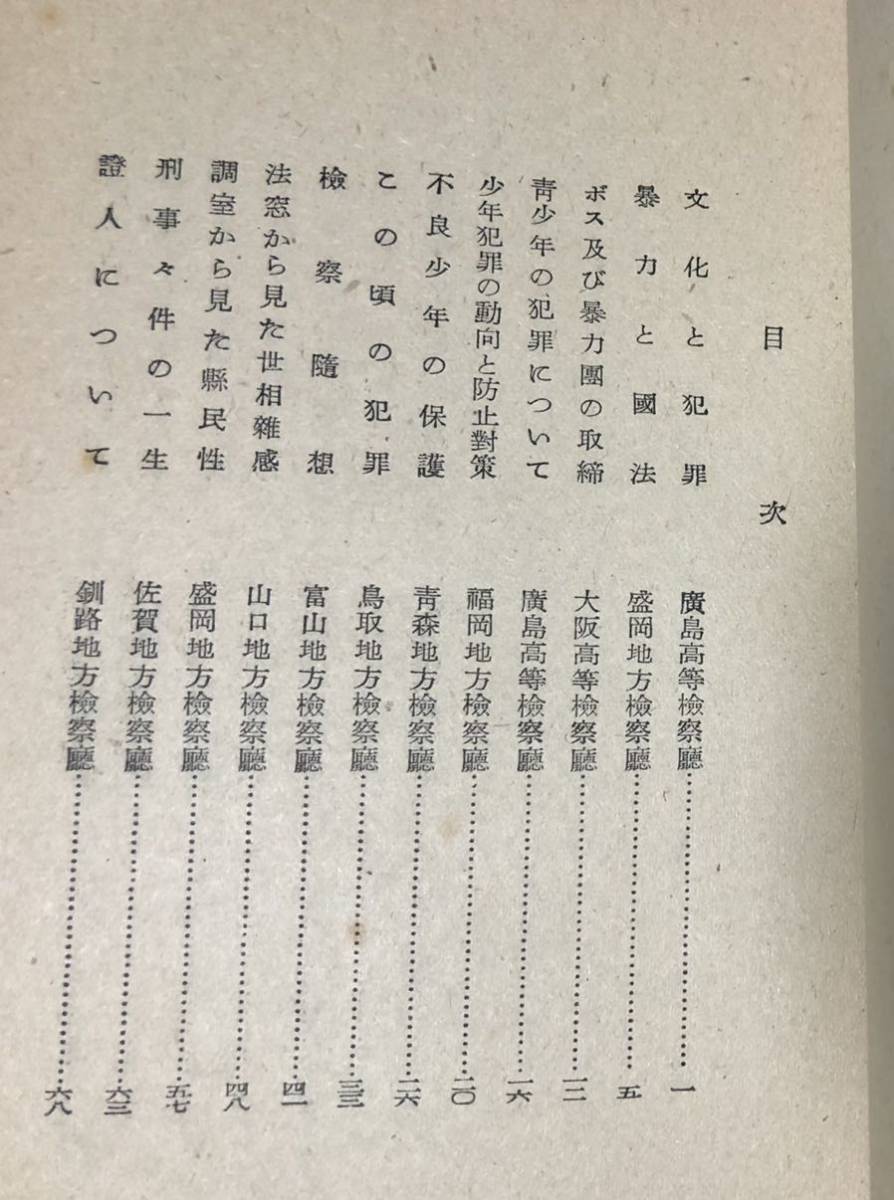 目次
文化と犯罪 廣島高等檢察廳……………………一
暴力と國法 盛岡地方檢察廳……………………五
ボス及び暴力團の取締 大阪高等檢察廳……………………一二
靑少年の犯罪について 廣島高等檢察廳……………………一六
少年犯罪の動向と防止對策 福岡地方檢察廳……………………二〇
不良少年の保護 靑森地方檢察廳……………………二六
この頃の犯罪 鳥取地方檢察廳……………………三三
檢察隨想 富山地方檢察廳……………………四一
法窓から見た世相雜感 山口地方檢察廳……………………四八
調室から見た縣民性 盛岡地方檢察廳……………………五七
刑事々件の一生 佐賀地方檢察廳……………………六三
證人について 釧路地方檢察廳……………………六八